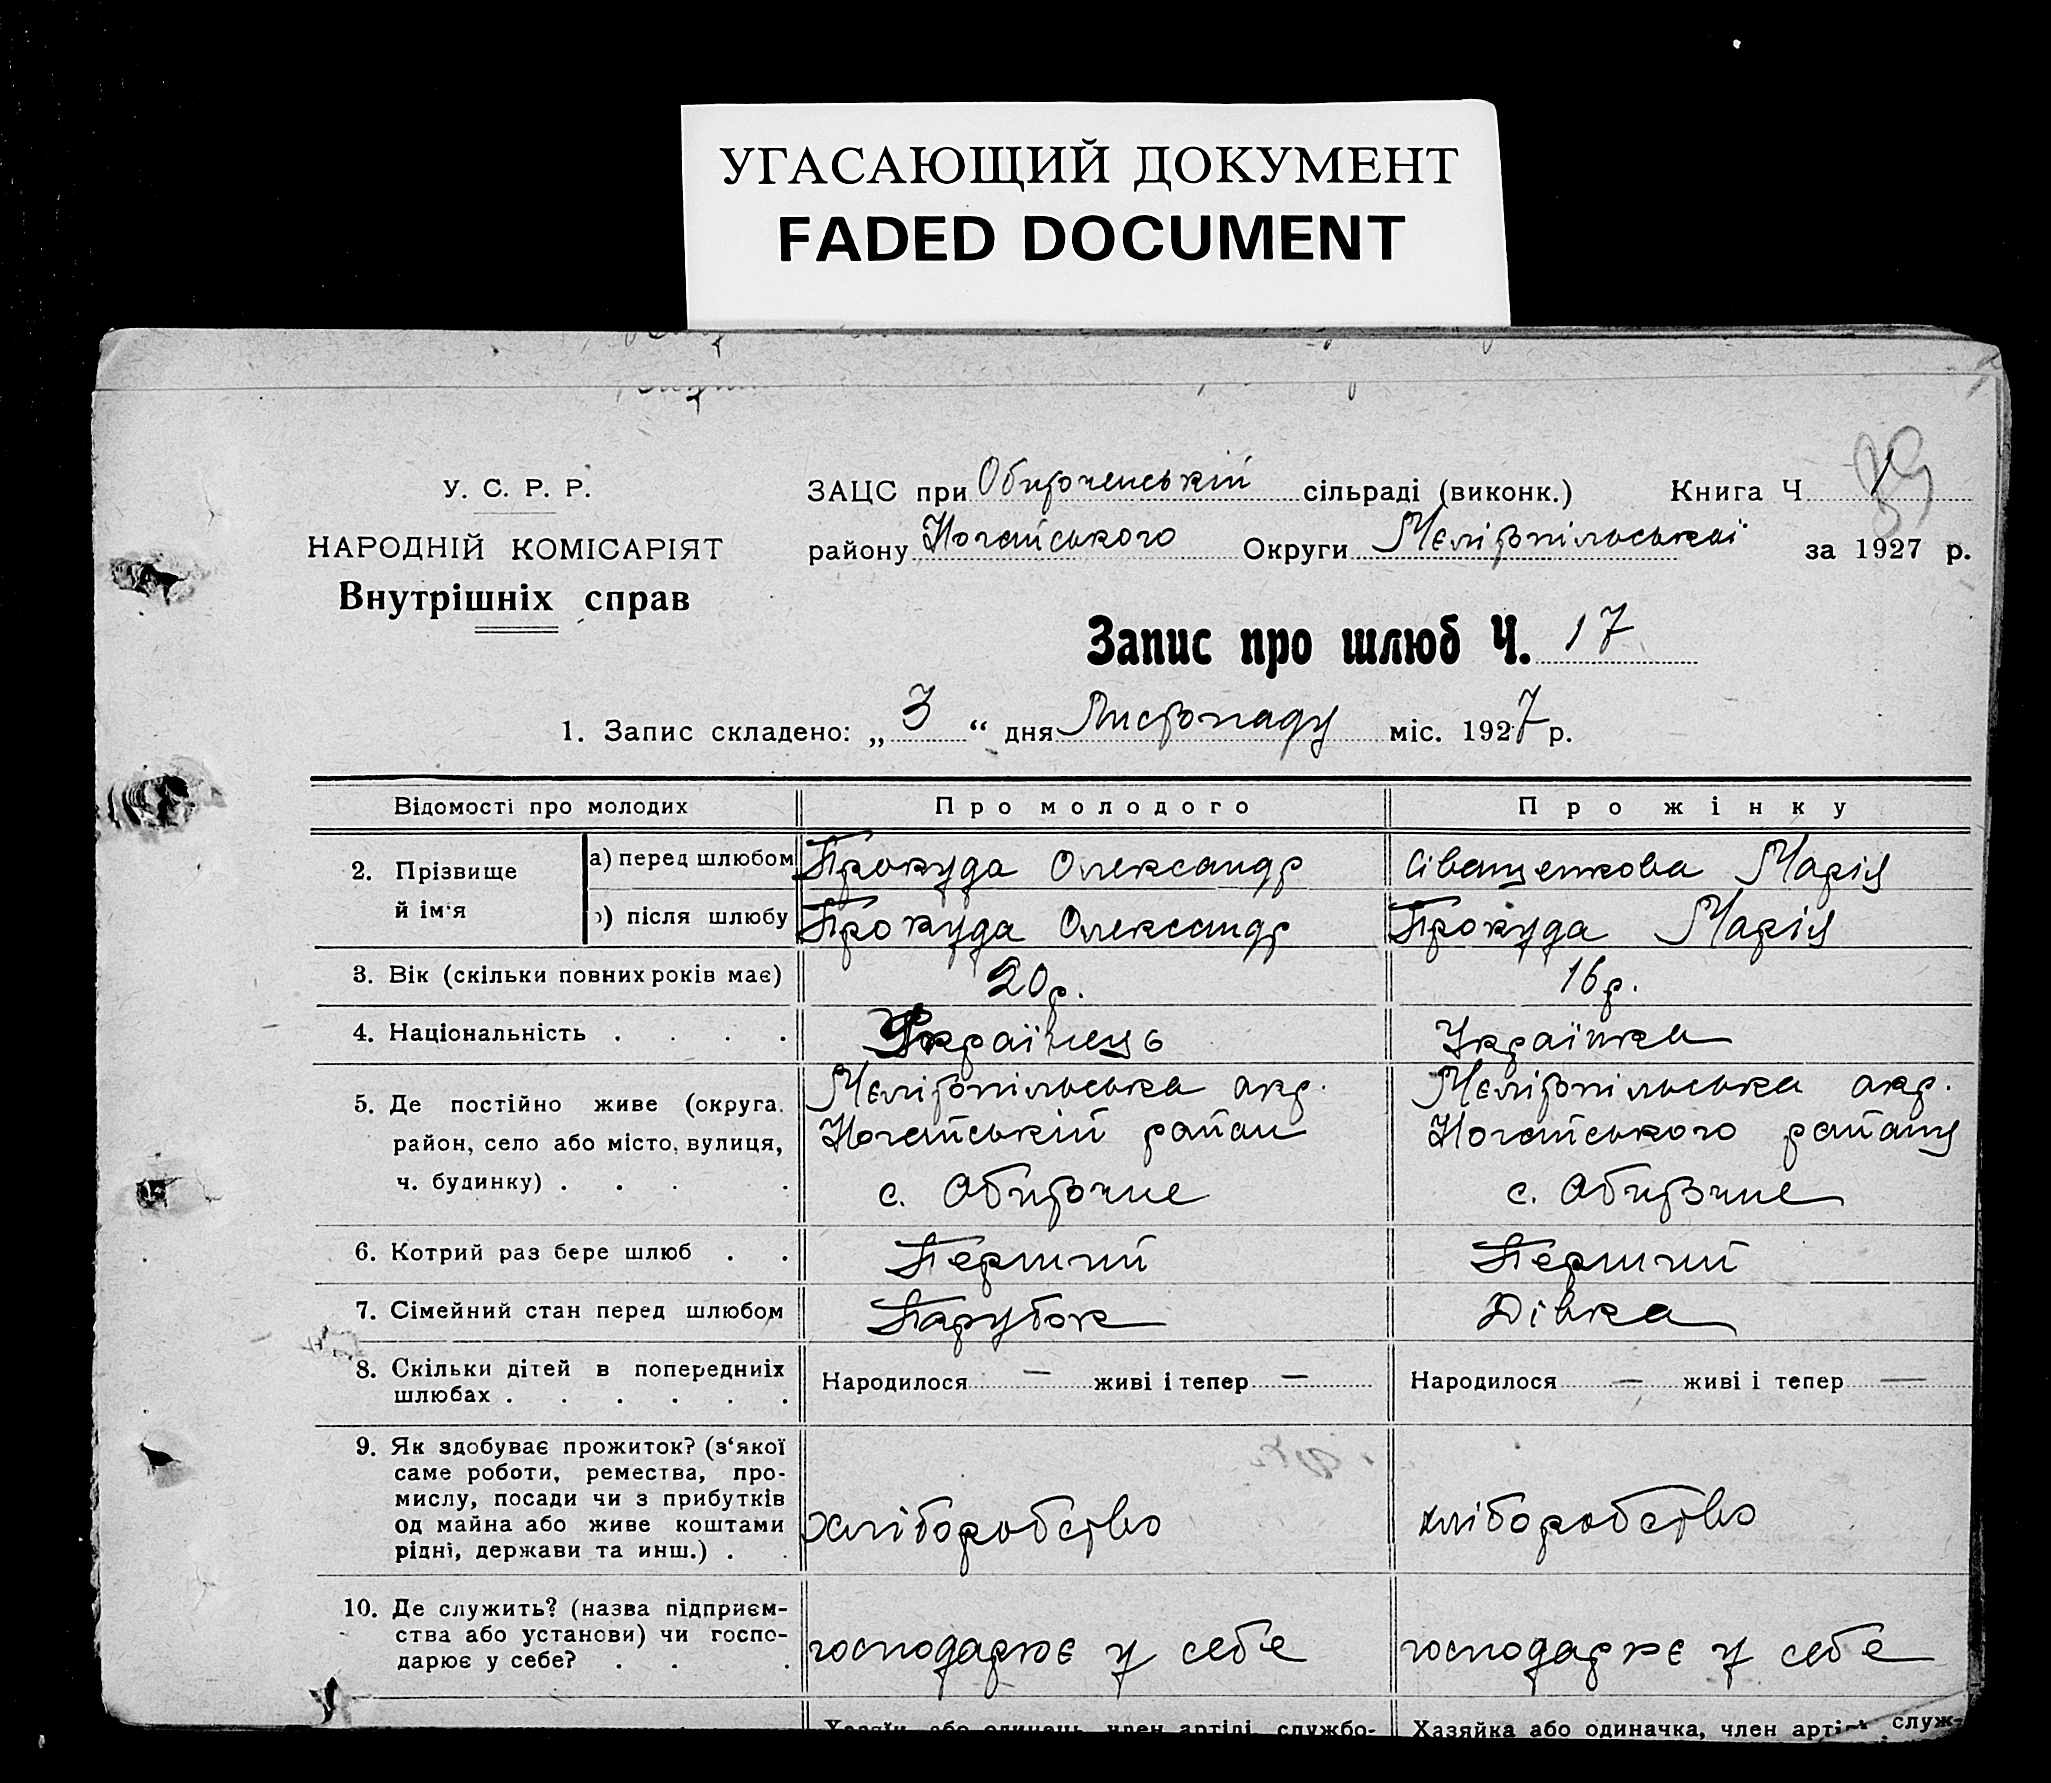 УГАСАЮЩИЙ ДОКУМЕНТ
FADED DOCUMENT
У. С. Р. Р.
НАРОДНІЙ КОМІСАРІЯТ
Внутрішніх справ
ЗАЦС при Обиточенській сільраді (виконк.) Книга Ч 1
39
району Ногайського Округи Мелітопільської за 1927 р.
Запис про шлюб Ч. 17
1. Запис складено: „ 3 “ дня Листопаду міс. 1927 р.
Відомості про молодих Про молодого Про жінку
2. Прізвище й ім‘я
а) перед шлюбом Прокуда Олександр Іващенкова Марія
) після шлюбу Прокуда Олександр Прокуда Марія
3. Вік (скільки повних років має) 20 р. 16 р.
4. Національність . . . . Українець Українка
5. Де постійно живе (округа, район, село або місто, вулиця, ч. будинку) . . . .
Мелітопільська окр. Мелітопільська окр.
Ногайській район Ногайського району
с. Обиточне с. Обиточне
6. Котрий раз бере шлюб . . Перший Перший
7. Сімейний стан перед шлюбом Парубок Дівка
8. Скільки дітей в попередниіх
шлюбах . . . . . .
Народилося — живі і тепер — Народилося — живі і тепер —
9. Як здобуває прожиток? (з‘якої
саме роботи, ремества, про-
мислу, посади чи з прибутків
од майна або живе коштами
рідні, держави та инш.) . .
хліборобство хліборобство
10. Де служить? (назва підприєм-
ства або установи) чи госпо-
дарює у себе? . . .
господарює у себе господарює у себе
Хазяїн або одинець, член артілі, службо- Хазяйка або одиначка, член артілі, служ-